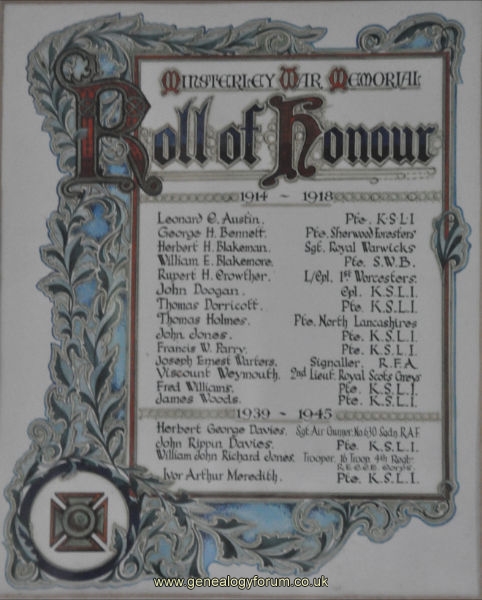 Minsterley War Memorial
Roll of Honour
1914 ~ 1918
Leonard C. Austin. Pte. K.S.L.I
George H. Bennett. Pte. Sherwood Foresters
Herbert H. Blakeman. Sgt. Royal Warwicks
William E. Blakemore. Pte. S.W.B.
Rupert H. Crowther. L/Cpl. 1st Worcesters.
John Doogan. Cpl. K.S.L.I.
Thomas Dorricott. Pte. K.S.L.I.
Thomas Holmes. Pte. North Lancashires
John Jones. Pte. K.S.L.I.
Francis W. Parry. Pte. K.S.L.I.
Joseph Ernest Warters. Signaller. R.F.A.
Viscount Weymouth. 2nd Lieut. Royal Scots Greys
Fred Williams. Pte. K.S.L.I.
James Woods. Pte. K.S.L.I.
1939 ~ 1945
Herbert George Davies. Sgt. Air Gunner. No. 630 Sqdn. R.A.F.
John Rippin Davies. Pte. K.S.L.I.
William John Richard Jones. Trooper, 16 Troop, 4th Regt.
Ivor Arthur Meredith. Pte. K.S.L.I.
www.genealogyforum.co.uk